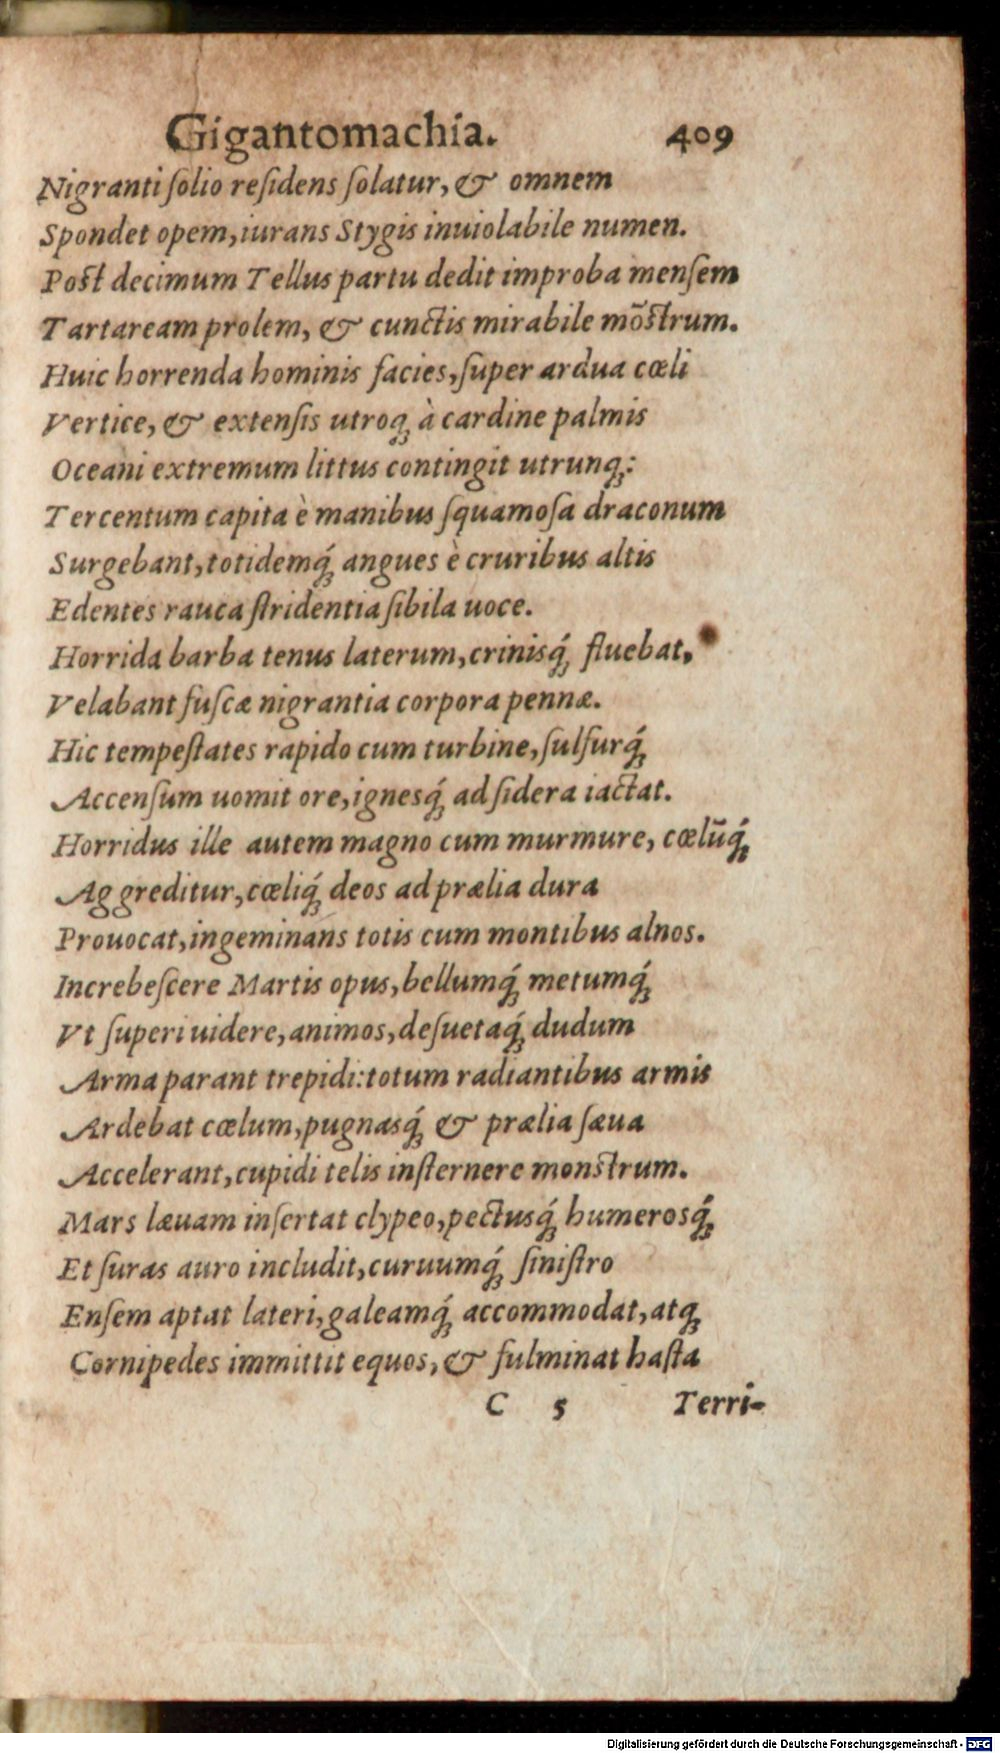 Gigantomachia. 409
Nigranti ſolio reſidens ſolatur, & omnem
Spondet opem, iurans Stygis inuiolabile numen.
Poſt decimum Tellus partu dedit improba menſem
Tartaream prolem, & cunctis mirabile mõſtrum.
Huic horrenda hominis facies, ſuper ardua cœli
Vertice, & extenſis utroq; à cardine palmis
Oceani extremum littus contingit utrunq;:
Tercentum capita è manibus ſquamoſa draconum
Surgebant, totidemq́; angues è cruribus altis
Edentes rauca ſtridentia ſibila uoce.
Horrida barba tenus laterum, crinisq́; fluebat,
Velabant fuſcæ nigrantia corpora pennæ.
Hic tempeſtates rapido cum turbine, ſulfurq́;
Accenſum uomit ore, ignesq́; ad ſidera iactat.
Horridus ille autem magno cum murmure, cœlũq́;
Aggreditur, cœliq́; deos ad prælia dura
Prouocat, ingeminans totis cum montibus alnos.
Increbeſcere Martis opus, bellumq́; metumq́;
Vt ſuperi uidere, animos, deſuetaq́; dudum
Arma parant trepidi: totum radiantibus armis
Ardebat cœlum, pugnasq́; & prælia ſæua
Accelerant, cupidi telis inſternere monſtrum.
Mars læuam inſertat clypeo, pectusq́; humerosq́;
Et ſuras auro includit, curuumq́; ſiniſtro
Enſem aptat lateri, galeamq́; accommodat, atq;
Cornipedes immittit equos, & fulminat haſta
C 5 Terri-
Digitalisierung gefördert durch die Deutsche Forschungsgemeinschaft - DFG